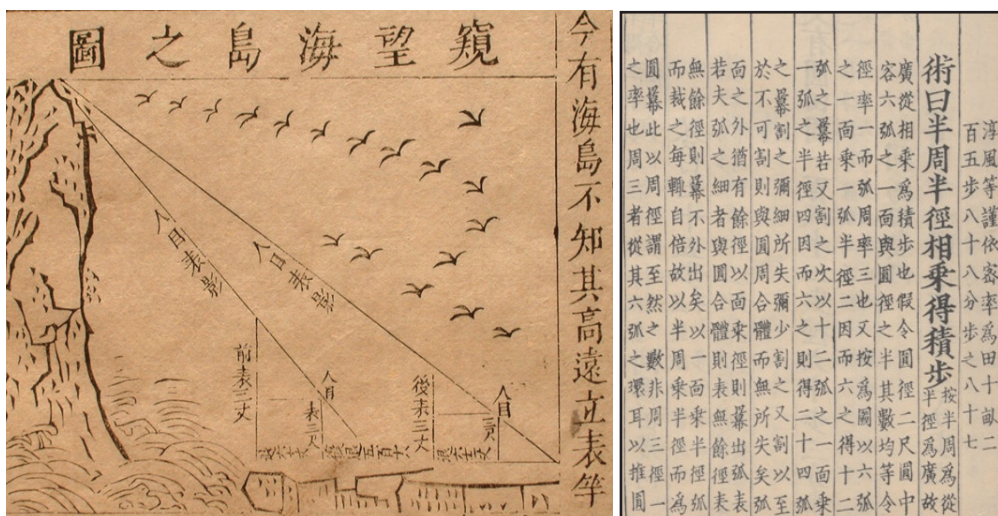 窺望海島之圖
今有海島不知其高遠立表竿
人目表影
人目表影
前表三丈
後表三丈
人目
表三尺
人目
三尺
淳風等謹依密率爲田十畝二
百五步八十八分步之八十七
術曰半周半徑相乘得積步
按半周爲從
半徑爲廣故
廣從相乘爲積步也假令圓徑二尺圓中
容六弧之一面與圓徑之半其數均等令
徑率一而弧周率三也又按爲圖以六弧
之一面乘一弧半徑二因而六之得十二
弧之冪若又割之次以十二弧之一面乘
一弧之半徑四因而六之則得二十四弧
之冪割之彌細所失彌少割之又割以至
於不可割則與圓周合體而無所失矣弧
面之外猶有餘徑以面乘徑則冪出弧表
若夫弧之細者與圓合體則表無餘徑表
無餘徑則冪不外出矣以一面乘半徑弧
而裁之每輒自倍故以半周乘半徑而爲
圓冪此以周徑謂至然之數非周三徑一
之率也周三者從其六弧之環耳以推圓